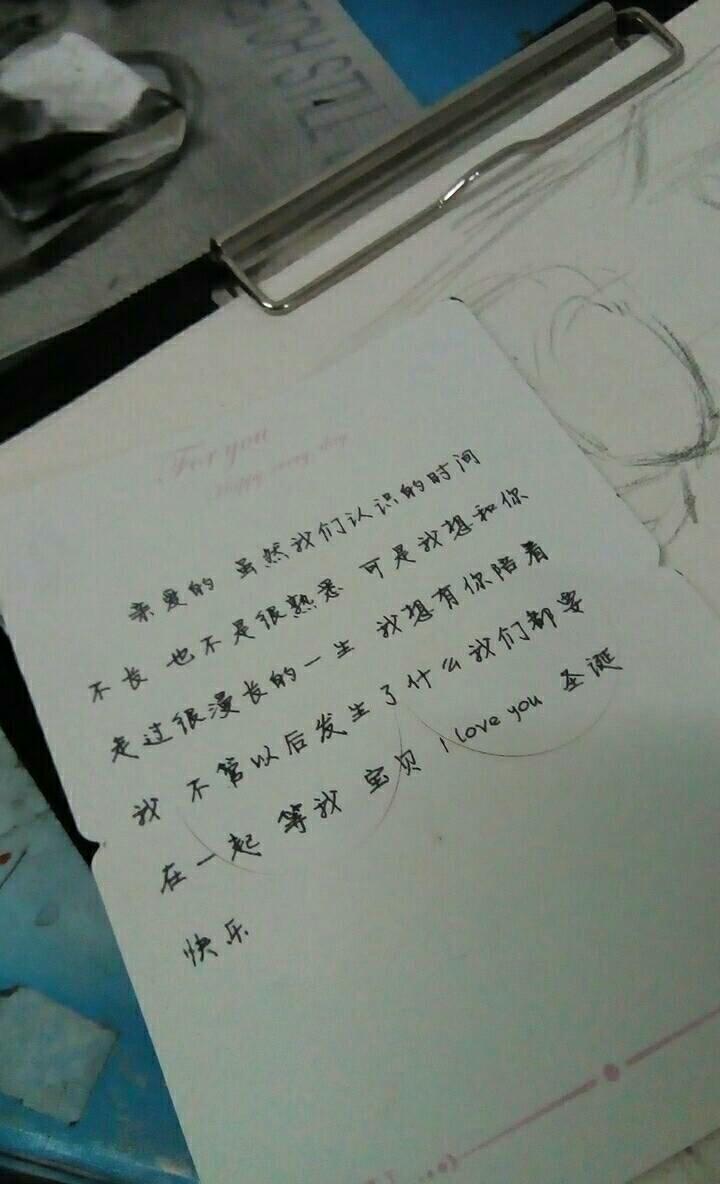 ETCH STILL
For you
Happy every day
亲爱的 虽然我们认识的时间
不长 也不是很熟悉 可是我想和你
走过很漫长的一生 我想有你陪着
我 不管以后发生了什么我们都要
在一起 等我 宝贝 I love you 圣诞
快乐